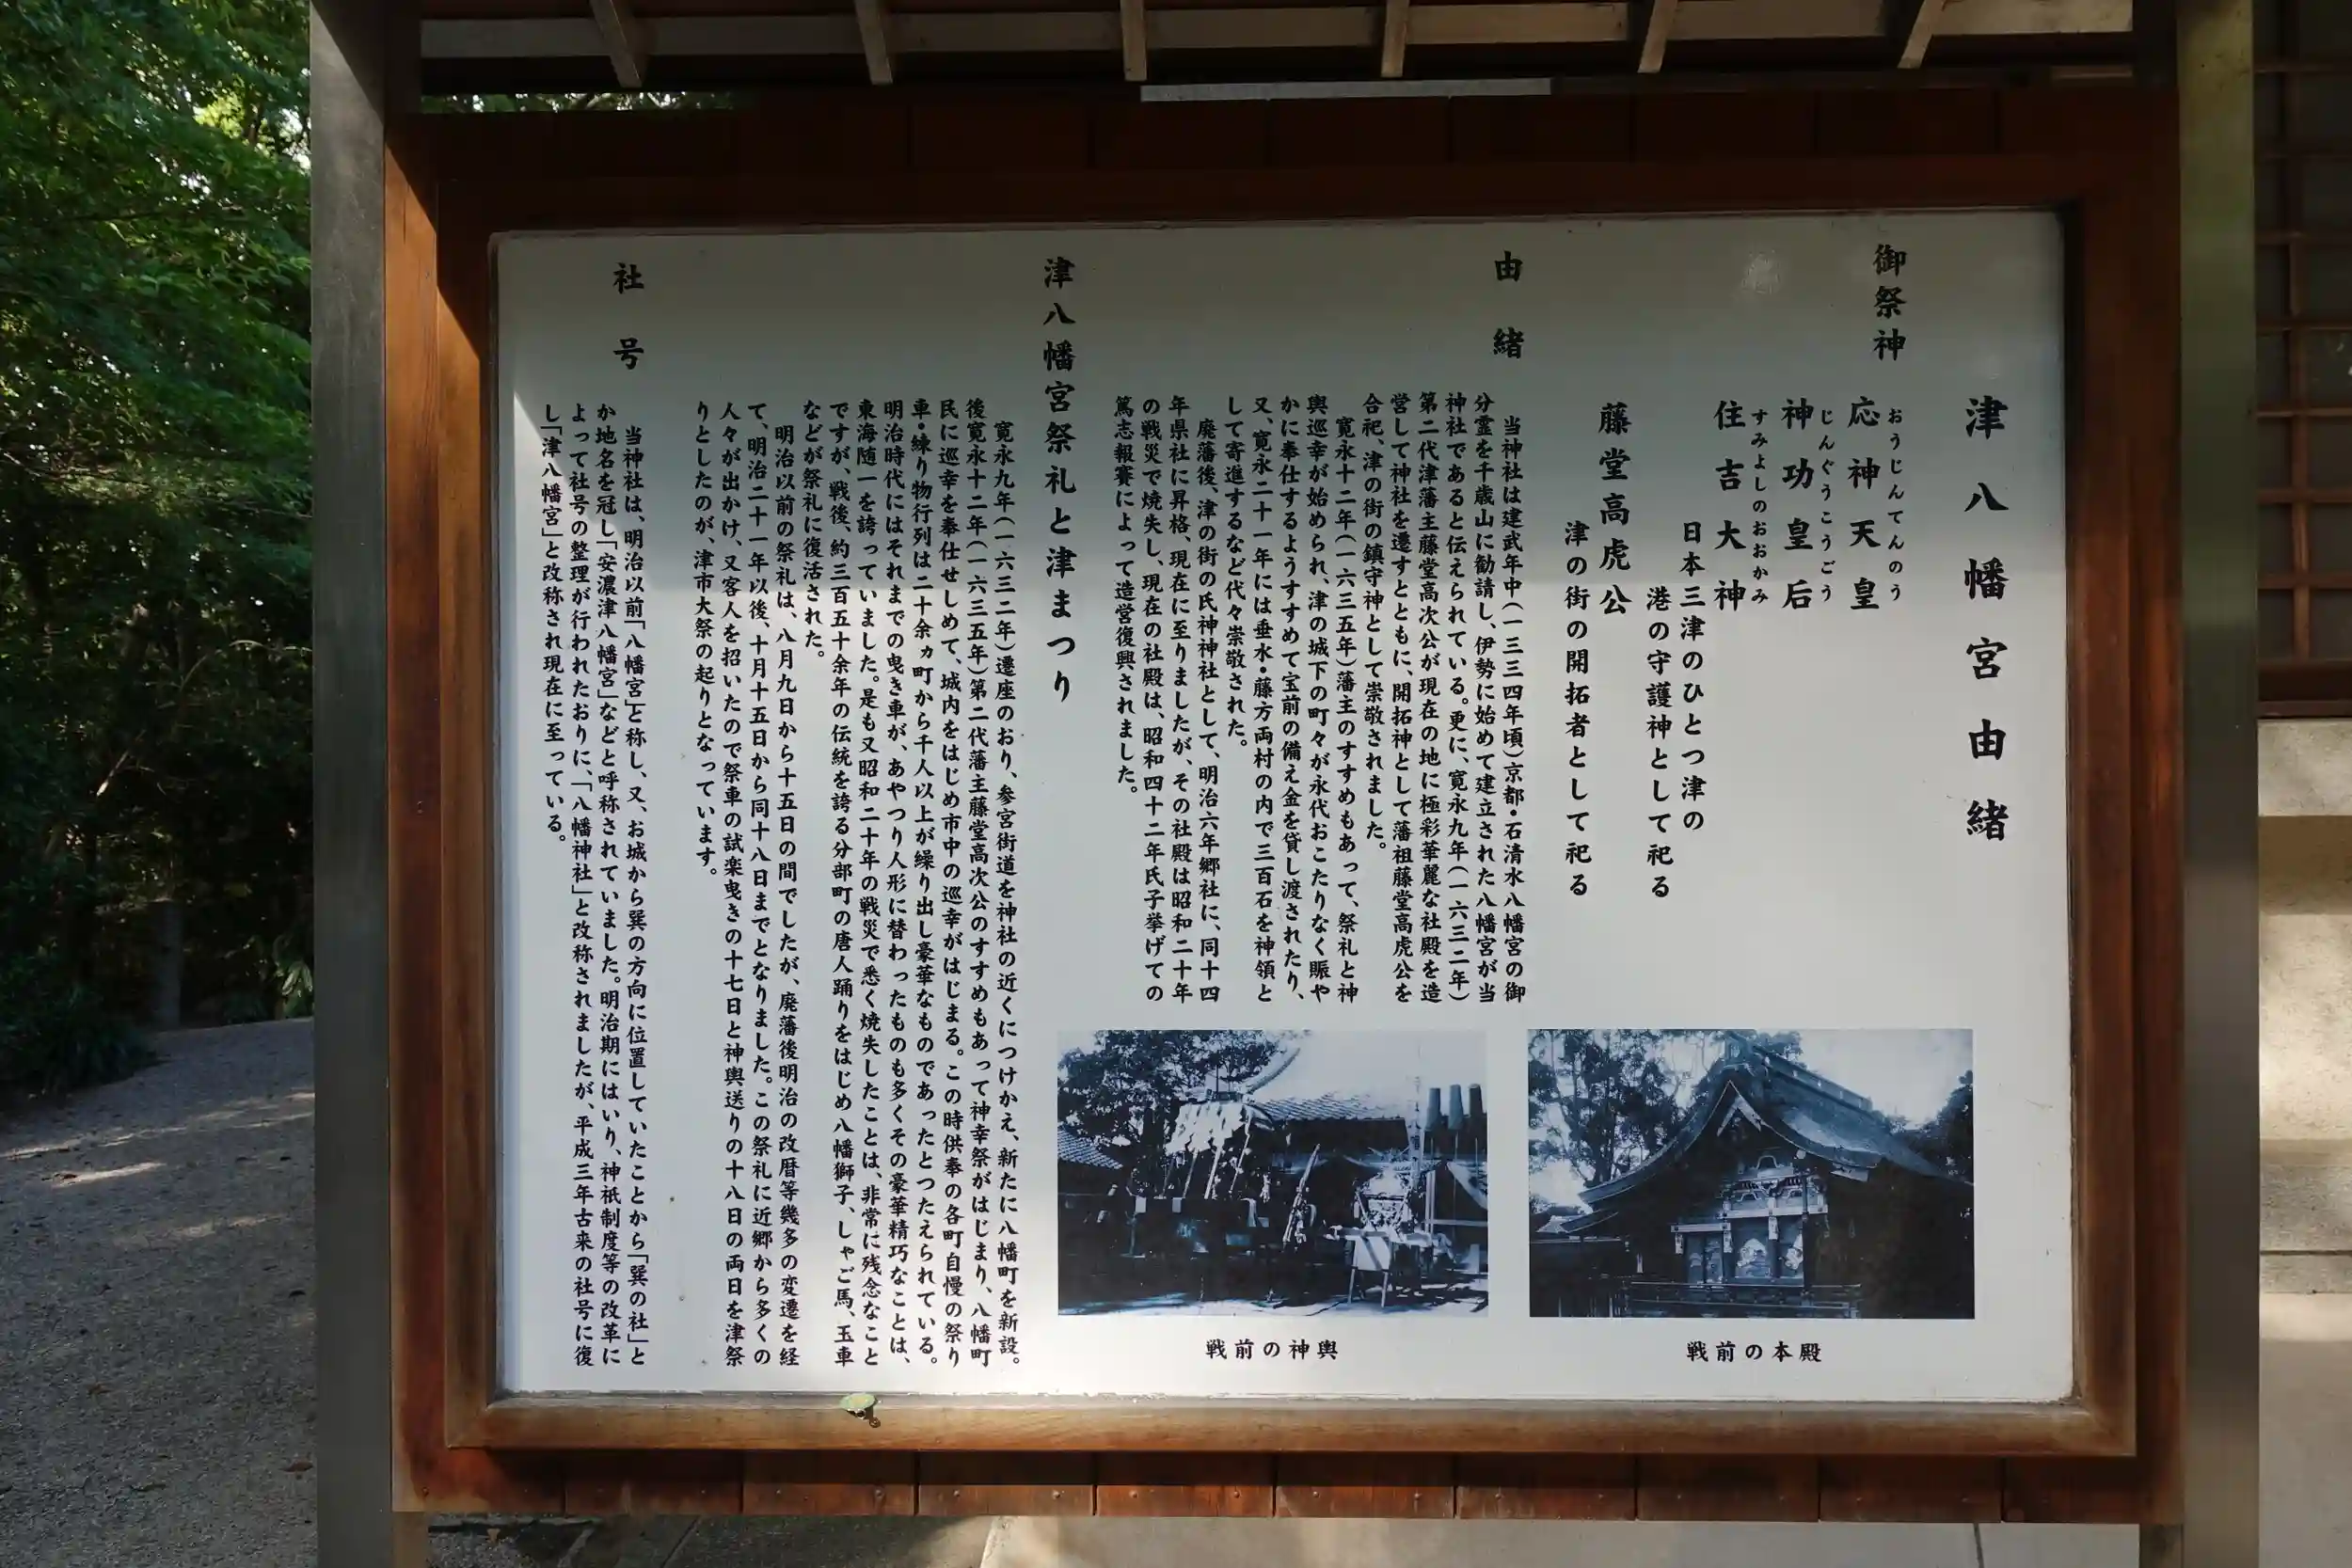 津八幡宮由緒
御祭神
おうじんてんのう
応神天皇
じんぐうこうごう
神功皇后
すみよしのおおかみ
住吉大神
日本三津のひとつ津の
港の守護神として祀る
藤堂高虎公
津の街の開拓者として祀る
由緒
当神社は建武年中(一三三四年頃)京都・石清水八幡宮の御
分霊を千歳山に勧請し、伊勢に始めて建立された八幡宮が当
神社であると伝えられている。更に、寛永九年(一六三二年)
第二代津藩主藤堂高次公が現在の地に極彩華麗な社殿を造
営して神社を遷すとともに、開拓神として藩祖藤堂高虎公を
合祀、津の街の鎮守神として崇敬されました。
寛永十二年(一六三五年)藩主のすすめもあって、祭礼と神
輿巡幸が始められ、津の城下の町々が永代おこたりなく賑や
かに奉仕するようすすめて宝前の備え金を貸し渡されたり、
又、寛永二十一年には垂水・藤方両村の内で三百石を神領と
して寄進するなど代々崇敬された。
廃藩後、津の街の氏神神社として、明治六年郷社に、同十四
年県社に昇格、現在に至りましたが、その社殿は昭和二十年
の戦災で焼失し、現在の社殿は、昭和四十二年氏子挙げての
篤志報賽によって造営復興されました。
津八幡宮祭礼と津まつり
寛永九年(一六三二年)遷座のおり、参宮街道を神社の近くにつけかえ、新たに八幡町を新設。
後寛永十二年(一六三五年)第二代藩主藤堂高次公のすすめもあって神幸祭がはじまり、八幡町
民に巡幸を奉仕せしめて、城内をはじめ市中の巡幸がはじまる。この時供奉の各町自慢の祭り
車・練り物行列は二十余ヵ町から千人以上が繰り出し豪華なものであったとつたえられている。
明治時代にはそれまでの曳き車が、あやつり人形に替わったものも多くその豪華精巧なことは、
東海随一を誇っていました。是も又昭和二十年の戦災で悉く焼失したことは、非常に残念なこと
ですが、戦後、約三百五十余年の伝統を誇る分部町の唐人踊りをはじめ八幡獅子、しゃご馬、玉車
などが祭礼に復活された。
明治以前の祭礼は、八月九日から十五日の間でしたが、廃藩後明治の改暦等幾多の変遷を経
て、明治二十一年以後、十月十五日から同十八日までとなりました。この祭礼に近郷から多くの
人々が出かけ、又客人を招いたので祭車の試楽曳きの十七日と神輿送りの十八日の両日を津祭
りとしたのが、津市大祭の起りとなっています。
社号
当神社は、明治以前「八幡宮」と称し、又、お城から巽の方向に位置していたことから「巽の社」と
か地名を冠し「安濃津八幡宮」などと呼称されていました。明治期にはいり、神祇制度等の改革に
よって社号の整理が行われたおりに、「八幡神社」と改称されましたが、平成三年古来の社号に復
し「津八幡宮」と改称され現在に至っている。
戦前の神輿
戦前の本殿